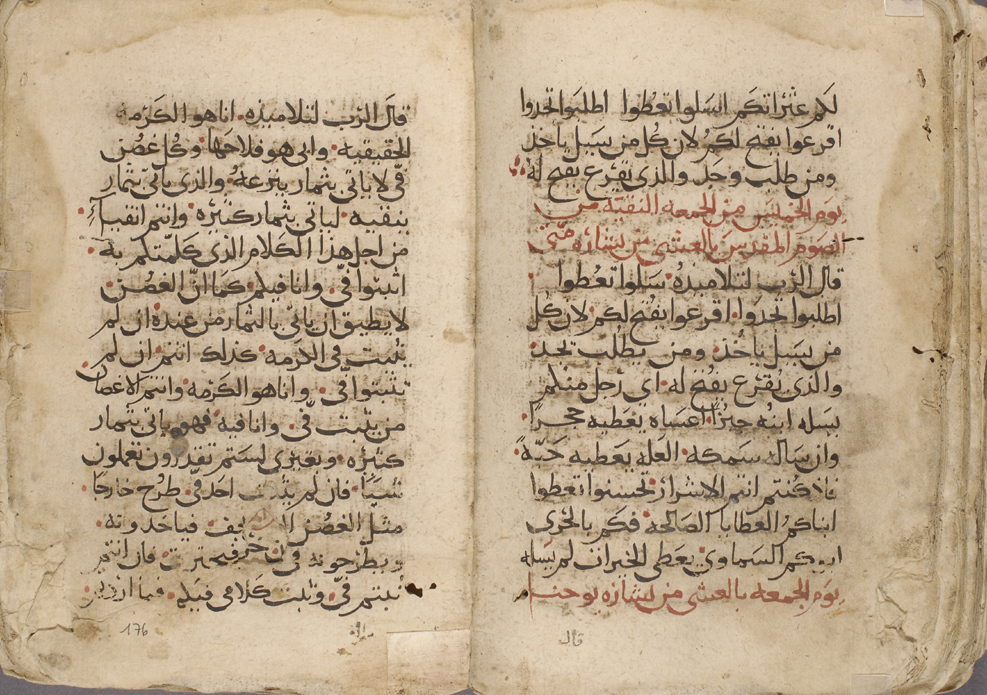 لكم عثراتكم اسلوا تعطوا اطلبوا تجدوا
اقرعوا يفتح لكم لان كل من يسل ياخذ
ومن طلب وجد والذى يقرع يفتح له
يوم الخميس من الجمعه النقيه من
الصوم المقدس بالعشى من بشاره متى
قال الرب لتلاميذه سلوا تعطوا
اطلبوا تجدوا اقرعوا يفتح لكم لان كل
من يسل ياخذ ومن يطلب يجد
والذى يقرع يفتح له اي رجل منكم
يسله ابنه خبزا عساه يعطيه حجرا
وان ساله سمكه العله يعطيه حية
فاذ كنتم انتم الاشرار تحسنوا تعطوا
ابناكم العطايا الصالحة فكم بالحري
ابوكم السماوي يعطى الخيرات لم يسله
يوم الجمعه بالعشى من بشاره يوحنا
قال
قال الرب لتلاميذه انا هو الكرمه
الحقيقيه وابى هو فلاحها وكل غصن
فى لا ياتى بثمار ينزعه والذى ياتى بثمار
ينقيه لياتى بثمار كثيره وانتم انقيا
من اجل هذا الكلام الذى كلمتكم به
اثبتوا فى وانا فيكم كما ان الغصن
لا يطيق ان ياتى بالثمار من عنده ان لم
يثبت فى الكرمه كذلك انتم ان لم
تثبتوا فى وانا هو الكرمه وانتم الاغصان
من يثبت فى وانا فيه فهو ياتى بثمار
كثيره وبغيرى لستم تقدرون تعملون
شيا فان لم يثبت احد فى طرح خارجا
مثل الغصن يجف فياخذونه
ويطرحونه فى فيحترق فان انتم
ثبتم فى وثبت كلامى فيكم فما اردتم
176